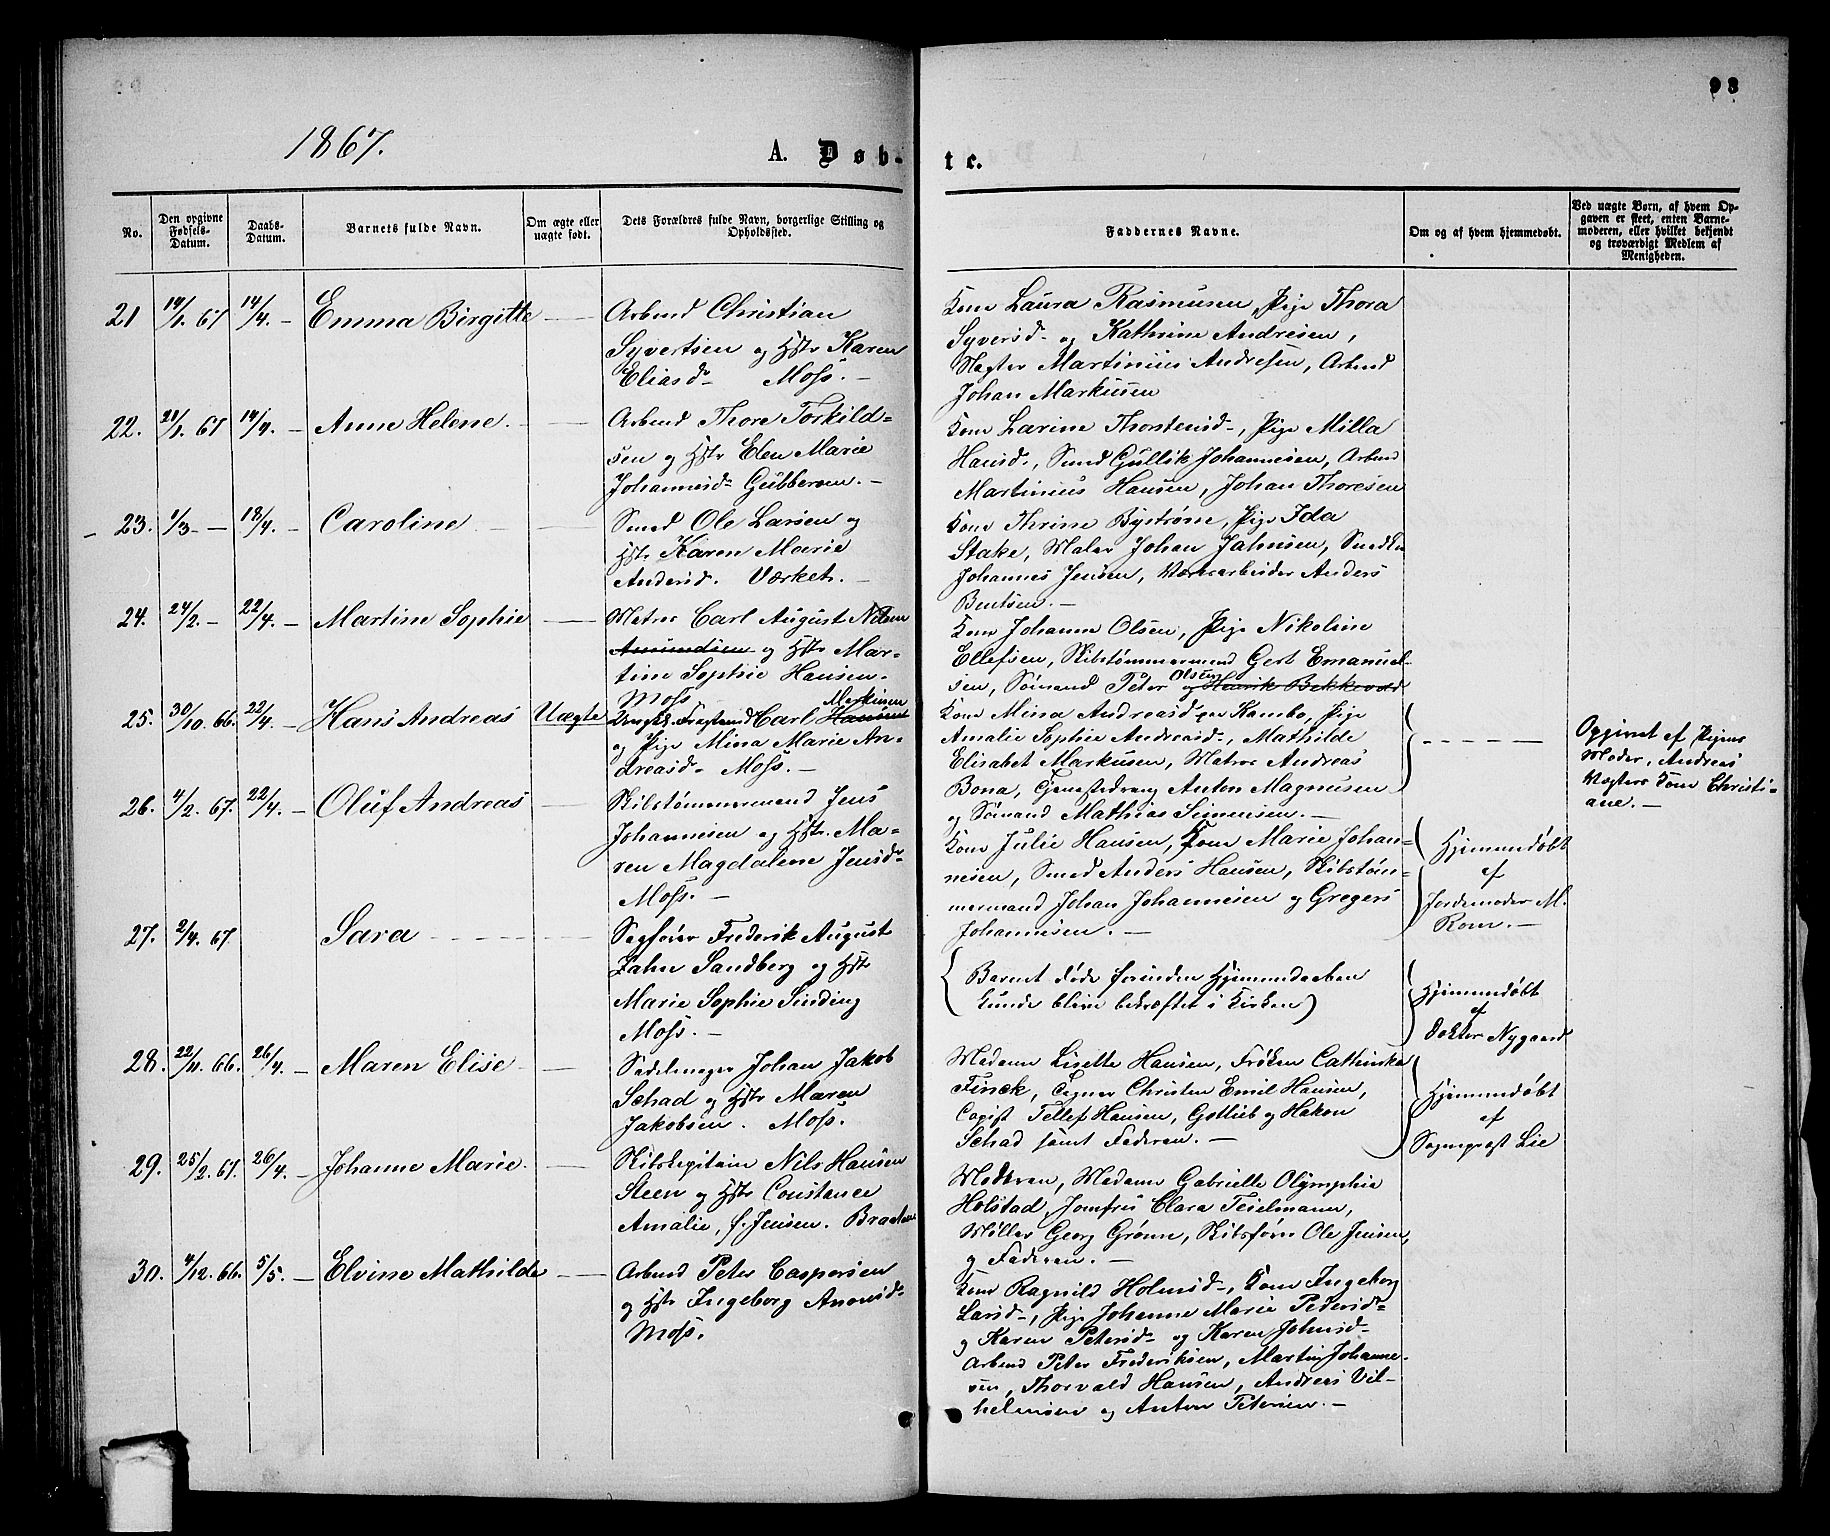 93
1867.
A. Døb-
te.
No.
Den opgivne Fødsels-Datum.
Daabs-Datum.
Barnets fulde Navn.
Om ægte eller uægte født.
Dets Forældres fulde Navn, borgerlige Stilling og Opholdssted.
Faddernes Navne.
Om og af hvem hjemmedøbt.
Ved uægte Børn, af hvem Op-
gaven er skeet, enten Barne-
moderen, eller hvilket bekjendt
og troværdigt Medlem af
Menigheden.
21 14/1. 67 14/4. – Emma Birgitte
Arbmd Christian
Syvertsen og Hstr Karen
Eliasd. Moss. –
Kone Laura Rasmusen, Pige Thora
Syversd. og Kathrine Andresen,
Slagter Martinius Andresen, Arbmd
Johan Markusen
22. 21/1. 67 14/4. – Anne Helene.
Arbmd Thore Torkild-
sen og Hstr Elen Marie
Johannesd. Gubberøen. –
Kone Larine Thorstensd., Pige Milla
Hansd., Smed Gullik Johannesen, Arbmd
Martinius Hansen, Johan Thoresen
23. 1/3 – 18/4. – Caroline
Smed Ole Larsen og
Hstr Karen Marie
Andersd. Værket. –
Kone Thrine Byström, Pige Ida
Stake, Maler Johan Jahnsen, Smed
Johannes Jensen, Værksarbeider Anders
Bentsen. –
24. 24/2. – 22/4. – Martine Sophie
Matros Carl August Nilsen
Amundsen og Hstr Mar-
tine Sophie Hansen.
Moss
Kone Johanne Olsen, Pige Nikoline
Ellefsen, Skibstømmermand Gert Emanuel-
sen, Sømand Peter Olsen og Henrik Bekkevold
25. 30/10. 66. 22/4. – Hans Andreas Uægte
Ungkl. Fragtmd Carl Hansen Markusen
og Pige Mina Marie An-
dreasd. Moss. –
Kone Mina Andreasd paa Kambo, Pige
Amalie Sophie Andreasd., Mathilde
Elisabet Markusen, Matros Andreas
Bona, Tjenestedreng Anton Magnusen
og Sømand Mathias Simensen. –
Opgivet af Pigens
Moder, Andreas
Vægters Kone Christi-
ane. –
26. 4/2. 67. 22/4. – Oluf Andreas
Skibstømmermand Jens
Johannesen og Hstr. Ma-
ren Magdalene Jensd.
Moss. –
Kone Julie Hansen, Kone Marie Johan-
nesen, Smed Anders Hansen, Skibstøm-
mermand Johan Johannesen og Gregers
Johannesen. –
Hjemmedøbt
af
Jordemoder M.
Rom. –
27. 2/4. 67. Sara
Sagfører Frederik August
Zahn Sandberg og Hstr
Marie Sophie Sinding
Moss. –
Barnet døde forinden Hjemmedaaben
kunde blive bekræftet i Kirken)
Hjemmedøbt
af
Doktor Nygaard
28. 22/11. 66. 26/4. – Maren Elise
Sadelmager Johan Jakob
Schad og Hstr Maren
Jakobsen. Moss.
Madame Lisette Hansen, Frøken Cathinka
Finck, Tegner Christen Emil Hansen,
Copist Tellef Hansen, Gottlieb og Hakon
Schad samt Faderen. –
Hjemmedøbt
af
Sogneprest Lie
29. 25/2. 67. 26/4. – Johanne Marie
Skibskapitain Nils Hansen
Steen og Hstr Constance
Amalie, f. Jensen.
Moderen, Madame Gabrielle Olympia
Holstad, Jomfru Clara Teielmann,
Møller Georg Grønn, Skibsfører Ole Jensen,
og Faderen. –
30. 4/12. 66. 5/5. – Elvine Mathilde
Arbmd Peter Caspersen
og Hstr Ingeborg Aronsd.
Moss.
Kone Ragnild Holmsd., Kone Ingeborg
Larsd., Pige Johanne Marie Pedersd.
og Karen Petersd. og Karen Johnsd.
Arbmd Peter Frederiksen, Martin Johanne-
sen, Thorvald Hansen, Andreas Vil-
helmsen og Anton Petersen. –